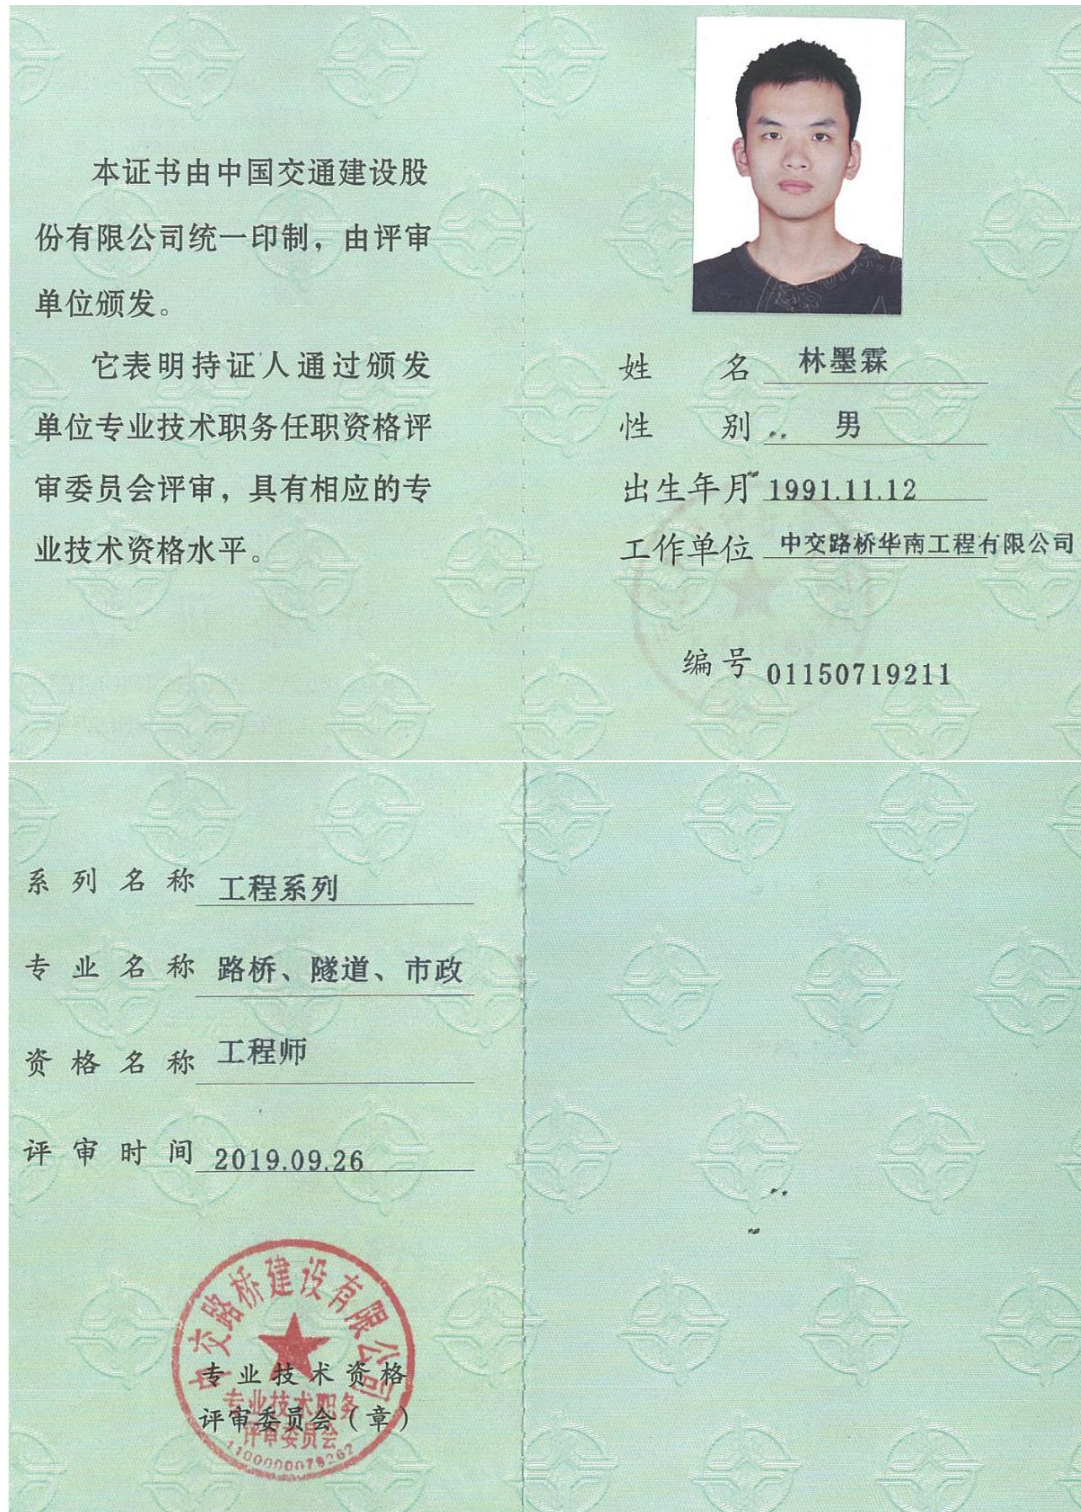 本证书由中国交通建设股
份有限公司统一印制，由评审
单位颁发。
它表明持证人通过颁发
单位专业技术职务任职资格评
审委员会评审，具有相应的专
业技术资格水平。
姓 名 林墨霖
性 别 男
出生年月 1991.11.12
工作单位 中交路桥华南工程有限公司
编号 01150719211
系列名称 工程系列
专业名称 路桥、隧道、市政
资格名称 工程师
评审时间 2019.09.26
中交路桥建设有限公司
专业技术资格
专业技术职务
评审委员会（章）
评审委员会
1100000079262